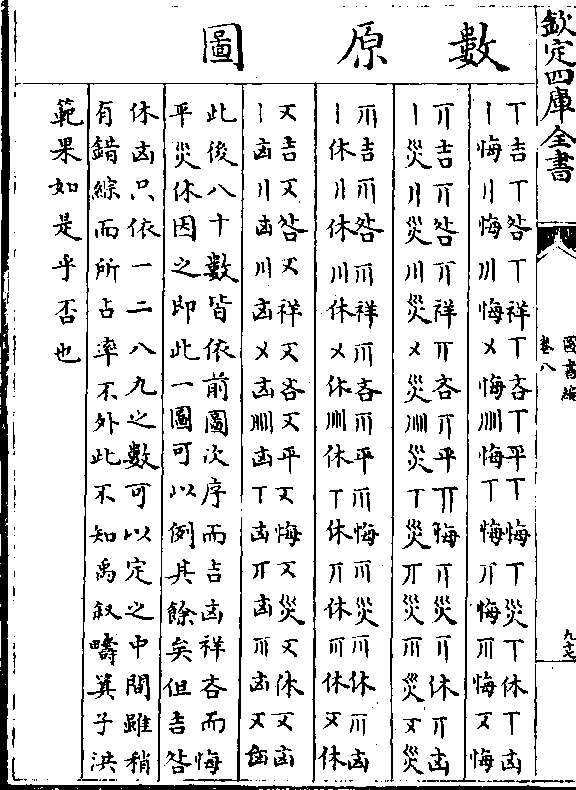 欽定四庫全書
圖書編
卷八
九十七
數原圖
丅吉丅咎丅祥丅吝丅平丅悔丅災丅休丅凶
〡悔〢悔〣悔〤悔|||||悔丅悔〧悔〨悔〩悔
〧吉〧咎〧祥〧吝〧平〧悔〧災〧休〧凶
〡災〢災〣災〤災|||||災丅災〧災〨災〩災
〨吉〨咎〨祥〨吝〨平〨悔〨災〨休〨凶
〡休〢休〣休〤休|||||休丅休〧休〨休〩休
〩吉〩咎〩祥〩吝〩平〩悔〩災〩休〩凶
〡凶〢凶〣凶〤凶|||||凶丅凶〧凶〨凶〩凶
此後八十數皆依前圖次序而吉凶祥吝而悔
平災休因之即此一圖可以例其餘矣但吉咎
休凶只依一二八九之數可以定之中間雖稍
有錯綜而所占率不外此不知禹叙疇箕子洪
範果如是乎否也